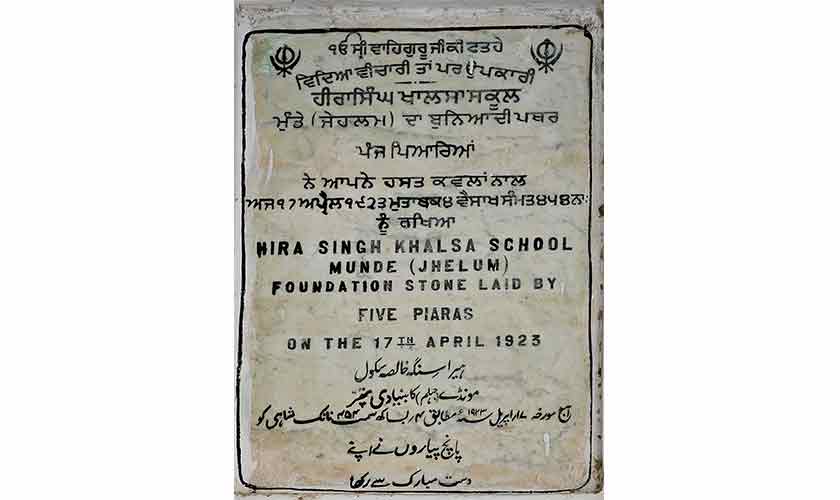 ੴ ਸ੍ਰੀ ਵਾਹਿਗੁਰੂ ਜੀਕੀ ਫਤਹੇ
ਵਿਦਿਆ ਵੀਚਾਰੀ ਤਾਂ ਪਰਉਪਕਾਰੀ
ਹੀਰਾਸਿੰਘ ਖਾਲਸਾ ਸਕੂਲ
ਮੁੰਡੇ (ਜੇਹਲਮ) ਦਾ ਬੁਨਿਆਦੀ ਪਥਰ
ਪੰਜ ਪਿਆਰਿਆਂ
ਨੇ ਆਪਨੇ ਹਸਤ ਕਵਲਾਂ ਨਾਲ
ਅਜ ੧੭ ਅਪ੍ਰੈਲ ੧੯੨੩ ਮੁਤਾਬਕ ੪ ਵੈਸਾਖ ਸੰਮਤ ੪੫੪ ਨਾ:
ਨੂੰ ਰਖਿਆ
HIRA SINGH KHALSA SCHOOL
MUNDE (JHELUM)
FOUNDATION STONE LAID BY
FIVE PIARAS
ON THE 17TH APRIL 1923
ہیرا سنگھ خالصہ سکول
مونڈے (جہلم) کا بنیادی پتھر
آج مورخہ ۱۷ اپریل سنہ ۱۹۲۳ء مطابق ۴ بساکھ سمت ۴۵۴ نانک شاہی کو
پانچ پیاروں نے اپنے
دست مبارک سے رکھا